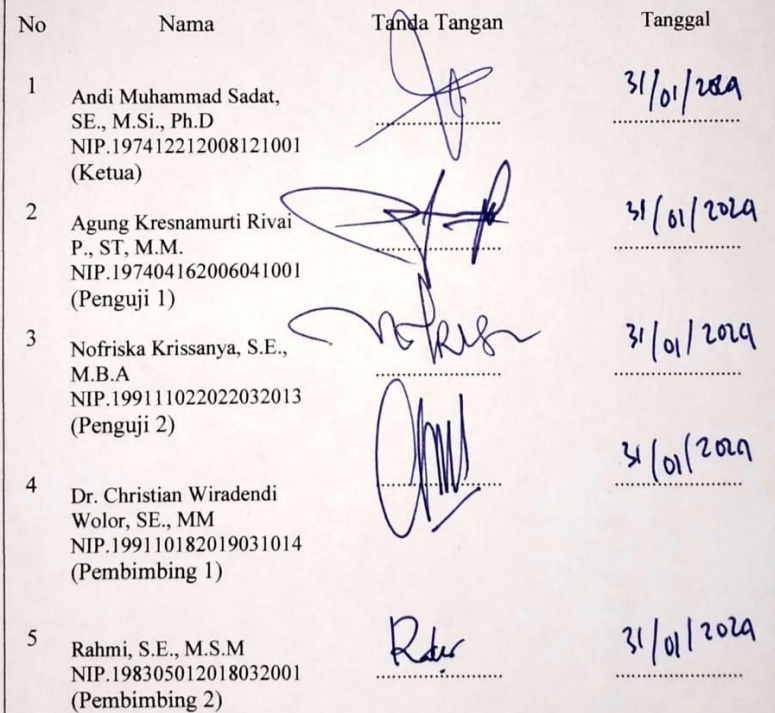 No Nama Tanda Tangan Tanggal
1 31/01/2024
Andi Muhammad Sadat,
SE., M.Si., Ph.D
NIP.197412212008121001
(Ketua)
2 31/01/2024
Agung Kresnamurti Rivai
P., ST, M.M.
NIP.197404162006041001
(Penguji 1)
3 31/01/2024
Nofriska Krissanya, S.E.,
M.B.A
NIP.199111022022032013
(Penguji 2)
4 31/01/2024
Dr. Christian Wiradendi
Wolor, SE., MM
NIP.199110182019031014
(Pembimbing 1)
5 31/01/2024
Rahmi, S.E., M.S.M
NIP.198305012018032001
(Pembimbing 2)